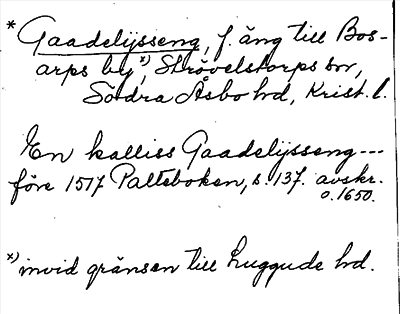 * Gaadelijsseng, f. äng till Bos-
arps by x), Strövelstorps sn,
Södra Åsbo hd, Krist. l.
En kalliss Gaadelijsseng ---
före 1517 Palteboken, s. 137. avskr.
o. 1650.
x) invid gränsen till Luggude hd.